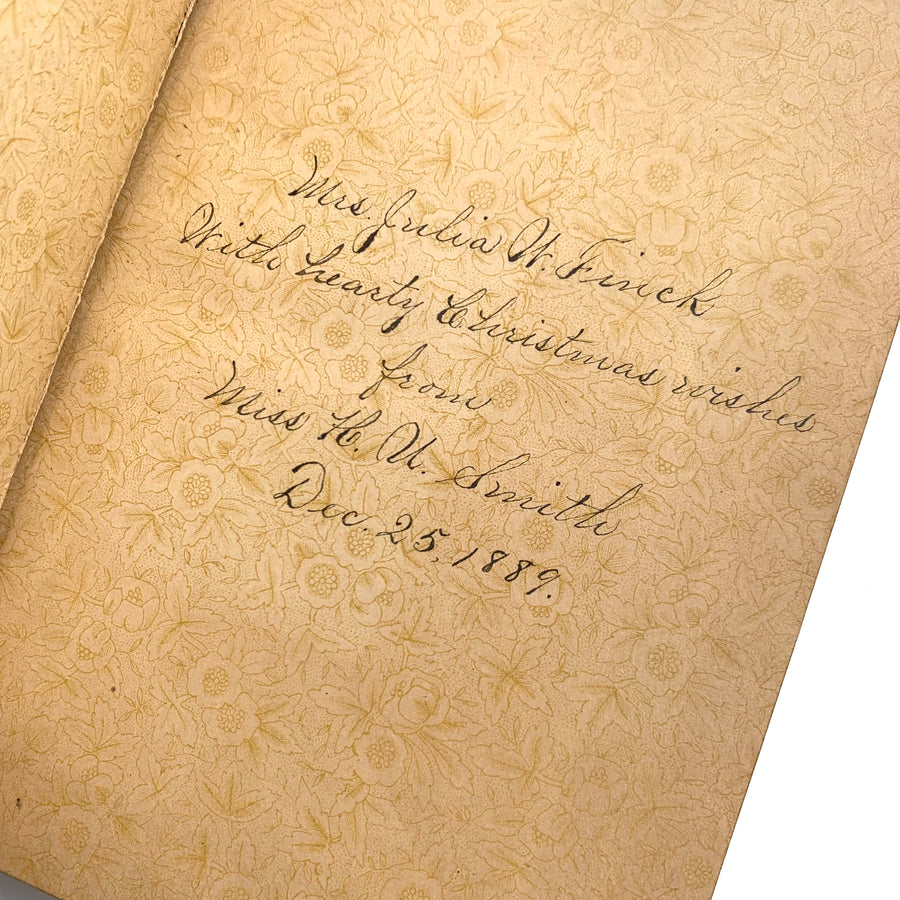 Mrs. Julia W. Finck
With hearty Christmas wishes
from
Miss H. U. Smith
Dec. 25, 1889.